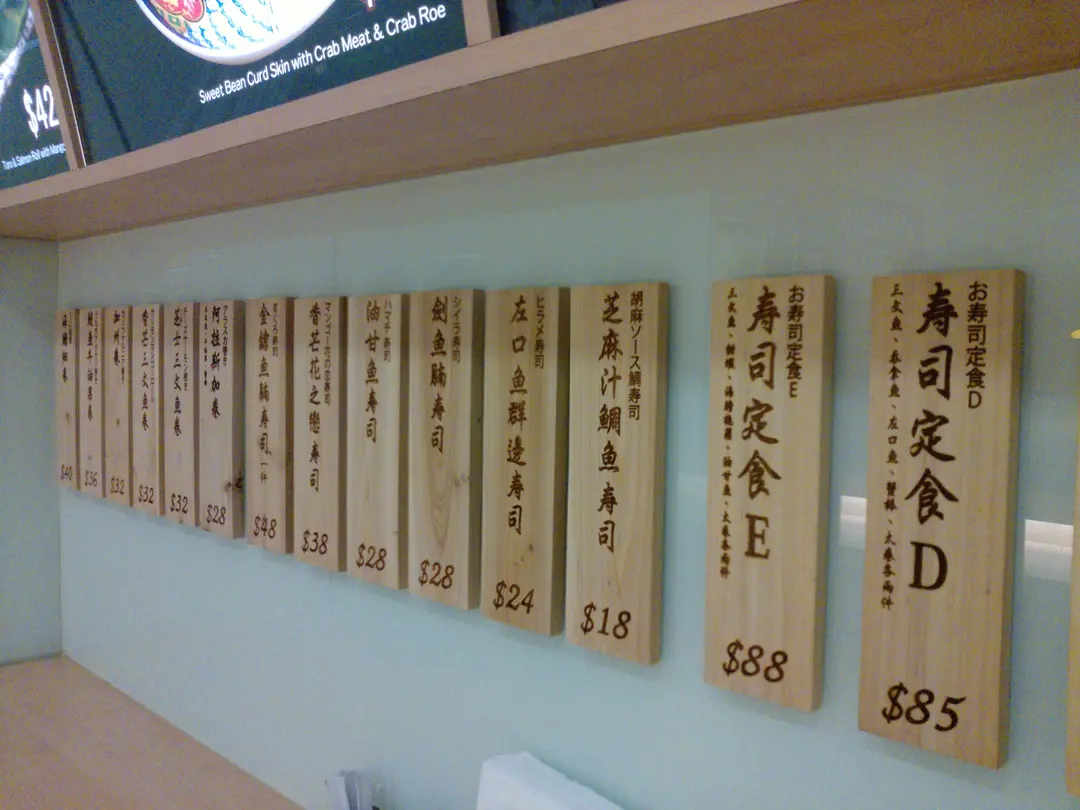 $42
Taro & Salmon Roll with Mango
Sweet Bean Curd Skin with Crab Meat & Crab Roe
$40
$36
加州卷
$32
香芒三文魚卷
$32
芝士三文魚卷
$32
阿拉斯加卷
$28
金鎗魚腩寿司
$48
マンゴー花の恋寿司
香芒花之戀寿司
$38
ハマチ寿司
油甘魚寿司
$28
シイラ寿司
劍魚腩寿司
$28
ヒラメ寿司
左口魚群邊寿司
$24
胡麻ソース鯛寿司
芝麻汁鯛魚寿司
$18
お寿司定食E
寿司定食E
$88
お寿司定食D
寿司定食D
三文魚、吞拿魚、左口魚、蟹棒、太卷各兩件
$85